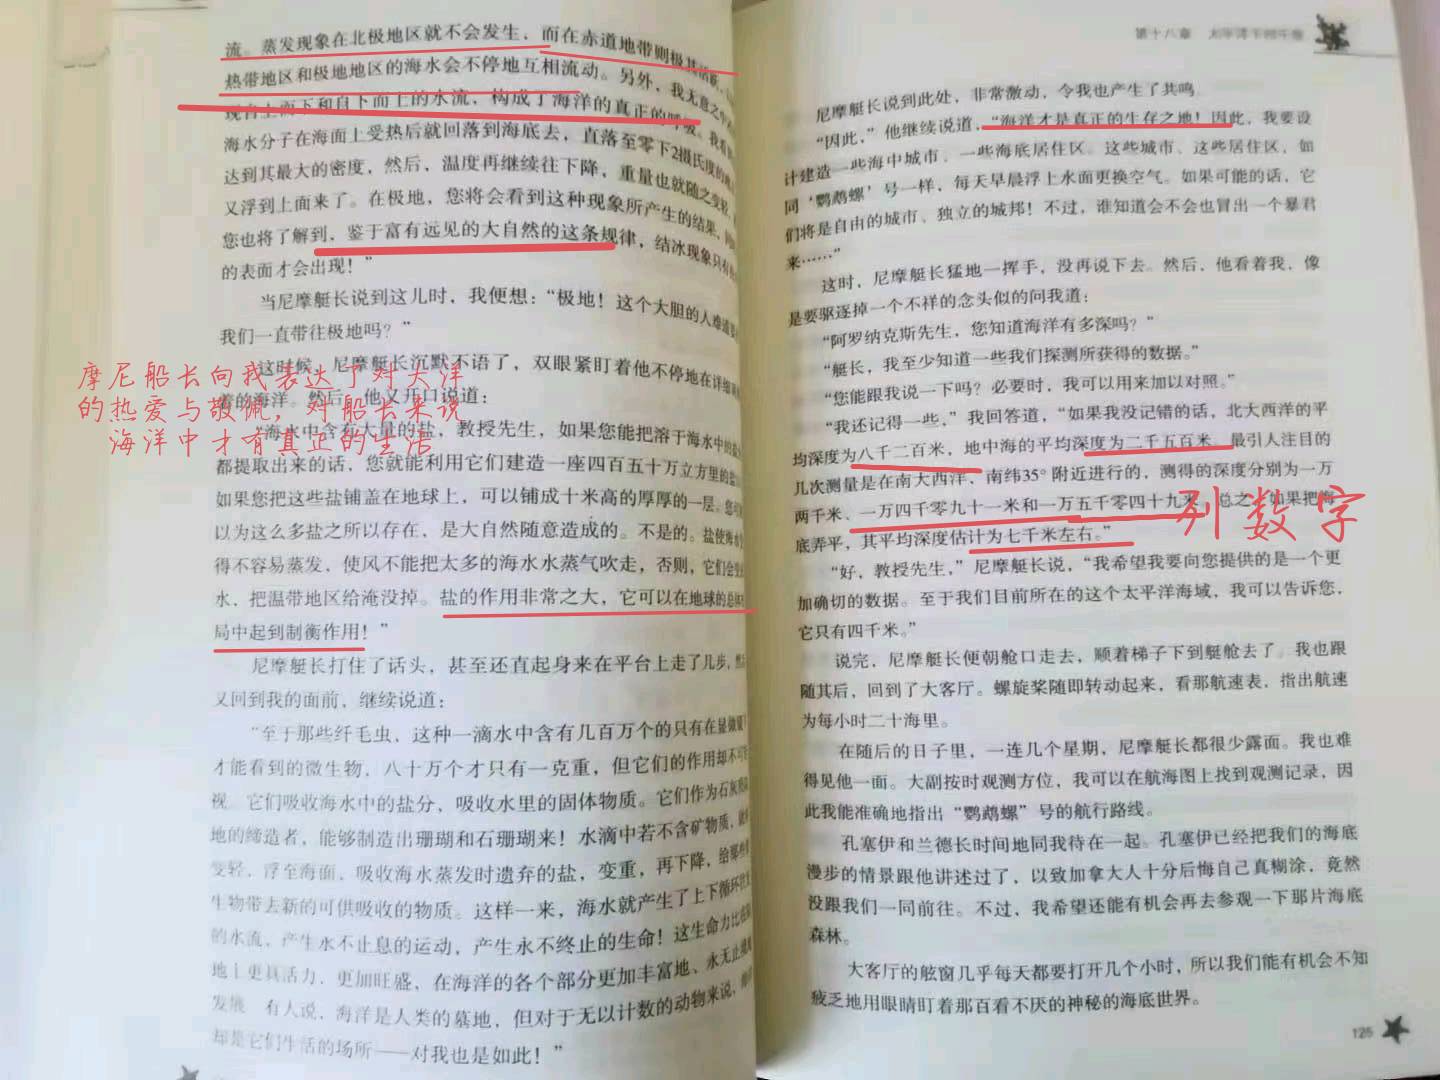 流。蒸发现象在北极地区就不会发生，而在赤道地带则极其活跃，
热带地区和极地地区的海水会不停地互相流动。另外，我无意之中
现自上而下和自下而上的水流，构成了海洋的真正的呼吸。我看
海水分子在海面上受热后就回落到海底去，直落至零下2摄氏度的
达到其最大的密度，然后，温度再继续往下降，重量也就随之变轻，
又浮到上面来了。在极地，您将会看到这种现象所产生的结果，
您也将了解到，鉴于富有远见的大自然的这条规律，结冰现象只有
的表面才会出现！”
当尼摩艇长说到这儿时，我便想：“极地！这个大胆的人难道
我们一直带往极地吗？”
这时候，尼摩艇长沉默不语了，双眼紧盯着他不停地在详细
着的海洋。然后，他又开口说道：
摩尼船长向我表达了对大洋
的热爱与敬佩，对船长来说
海洋中才有真正的生活
“海水中含有大量的盐，教授先生，如果您能把溶于海水中的盐
都提取出来的话，您就能利用它们建造一座四百五十万立方里的盐
如果您把这些盐铺盖在地球上，可以铺成十米高的厚厚的一层。您可
以为这么多盐之所以存在，是大自然随意造成的。不是的。盐使海水
得不容易蒸发，使风不能把太多的海水水蒸气吹走，否则，它们会
水，把温带地区给淹没掉。盐的作用非常之大，它可以在地球的总体
局中起到制衡作用！”
尼摩艇长打住了话头，甚至还直起身来在平台上走了几步，然
又回到我的面前，继续说道：
“至于那些纤毛虫，这种一滴水中含有几百万个的只有在显微镜下
才能看到的微生物，八十万个才只有一克重，但它们的作用却不可
视。它们吸收海水中的盐分，吸收水里的固体物质。它们作为石灰质
地的缔造者，能够制造出珊瑚和石珊瑚来！水滴中若不含矿物质，就
变轻，浮至海面，吸收海水蒸发时遗弃的盐，变重，再下降，给那些
生物带去新的可供吸收的物质。这样一来，海水就产生了上下循环往
的水流，产生永不止息的运动，产生永不终止的生命！这生命力比在
地上更具活力，更加旺盛，在海洋的各个部分更加丰富地、永无止境地
发展 有人说，海洋是人类的墓地，但对于无以计数的动物来说，
却是它们生活的场所——对我也是如此！”
第十八章 太平洋下四千里
尼摩艇长说到此处，非常激动，令我也产生了共鸣
“因此，”他继续说道，“海洋才是真正的生存之地！因此，我要设
计建造一些海中城市、一些海底居住区。这些城市、这些居住区，如
同‘鹦鹉螺’号一样，每天早晨浮上水面更换空气。如果可能的话，它
们将是自由的城市、独立的城邦！不过，谁知道会不会也冒出一个暴君
来……”
这时，尼摩艇长猛地一挥手，没再说下去。然后，他看着我，像
是要驱逐掉一个不祥的念头似的问我道：
“阿罗纳克斯先生，您知道海洋有多深吗？”
“艇长，我至少知道一些我们探测所获得的数据。”
“您能跟我说一下吗？必要时，我可以用来加以对照。”
“我还记得一些，”我回答道，“如果我没记错的话，北大西洋的平
均深度为八千二百米，地中海的平均深度为二千五百米。最引人注目的
几次测量是在南大西洋，南纬35°附近进行的，测得的深度分别为一万
两千米、一万四千零九十一米和一万五千零四十九米。总之，如果把海
底弄平，其平均深度估计为七千米左右。”
列数字
“好，教授先生，”尼摩艇长说，“我希望我要向您提供的是一个更
加确切的数据。至于我们目前所在的这个太平洋海域，我可以告诉您，
它只有四千米。”
说完，尼摩艇长便朝舱口走去，顺着梯子下到艇舱去了。我也跟
随其后，回到了大客厅。螺旋桨随即转动起来，看那航速表，指出航速
为每小时二十海里。
在随后的日子里，一连几个星期，尼摩艇长都很少露面。我也难
得见他一面。大副按时观测方位，我可以在航海图上找到观测记录，因
此我能准确地指出“鹦鹉螺”号的航行路线。
孔塞伊和兰德长时间地同我待在一起。孔塞伊已经把我们的海底
漫步的情景跟他讲述过了，以致加拿大人十分后悔自己真糊涂，竟然
没跟我们一同前往。不过，我希望还能有机会再去参观一下那片海底
森林。
大客厅的舷窗几乎每天都要打开几个小时，所以我们能有机会不知
疲乏地用眼睛盯着那百看不厌的神秘的海底世界。
125